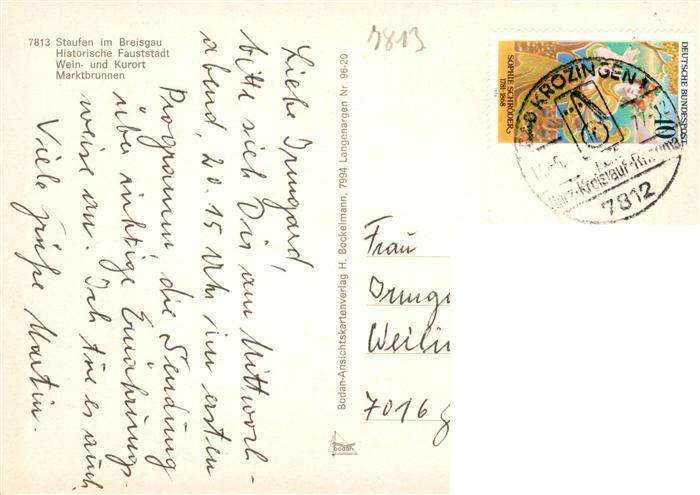 7813 Staufen im Breisgau
Historische Fauststadt
Wein- und Kurort
Marktbrunnen
7813
Liebe Irmgard,
bitte sieh Dir am Mittwoch-
abend, 20.15 Uhr im ersten
Programm, die Sendung
über richtige Ernährungs-
weise an. Ich tue es auch
Viele Grüße Martin.
Bodan-Ansichtskartenverlag H. Bockelmann, 7994 Langenargen Nr 96-20
bodan
DEUTSCHE BUNDESPOST
SOPHIE SCHRÖDER
1781-1868
40
KROZINGEN
Herz-Kreislauf-Rheuma
7812
Frau
Irmg
Weili
7016 g